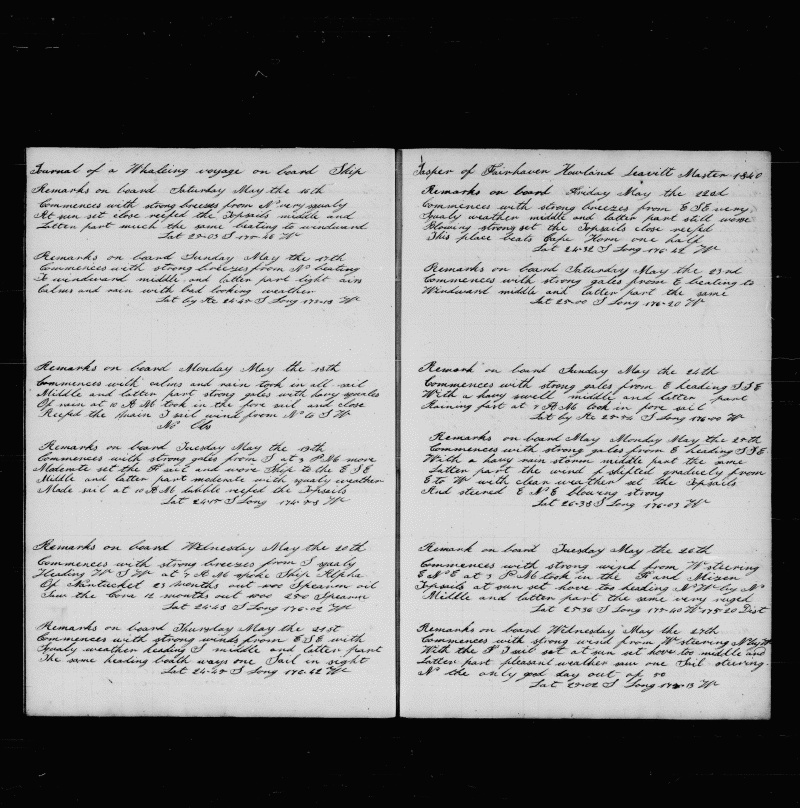 Journal of a Whaleing voyage on board Ship
Remarks on board Saturday May the 16th
Commences with strong breezes from N very squaly
At sun set close reefed the Topsails middle and
Latter part much the same beating to windward
Lat 25-03 S 175-46 W
Remarks on board Sunday May the 17th
Commences with strong breezes from N beating
To windward middle and latter part light airs
Calms and rain with bad looking weather
Lat by Ac 24-45 S Long 175-13 W
Remarks on board Monday May the 18th
Commences with calms and rain took in all sail
Middle and latter part strong gales with havy squales
Of rain at 10 A M took in the fore sail and close
Reefed the main T sail wind from N to S W
No Obs
Remarks on board Tuesday May the 19th
Commences with strong gales from S at 3 P M more
Moderate set the F sail and wore Ship to the E S E
Middle and latter part moderate with squaly weather
Made sail at 10 A M dubble reefed the Topsails
Lat 24-45 S Long 174-53 W
Remarks on board Wednesday May the 20th
Commences with strong breezes from S squaly
Heading W S W at 7 A M spoke Ship Alpha
Of Nantucket 23 months out Spearm oil
Saw the Cora 12 months out 250 Spearm
Lat 24-43 S Long 176-02 W
Remarks on board Thursday May the 21st
Commences with strong winds from E S E with
Squaly weather heading S middle and latter part
The same heading boath ways one Sail in sight
Lat 24-45 S Long 176-42 W
Jasper of Fairhaven Howland Leavitt Master 1840
Remarks on board Friday May the 22nd
Commences with strong breezes from E S E very
Squaly weather middle and latter part still worse
Blowing strong set the Topsails close reefed
This place beats Cape Horn one half
Lat 24-52 S Long 176-42 W
Remarks on board Saturday May the 23rd
Commences with strong gales from E beating to
Windward middle and latter part the same
Lat 25-00 S Long 176-20 W
Remark on board Sunday May the 24th
Commences with strong gales from E heading S S E
With a havy swell middle and latter part
Raining fast at 7 A M took in fore sail
Lat by Ac 25-45 S Long 176-00 W
Remarks on board May Monday May the 25th
Commences with strong gales from E heading S S E
With a havy rain storm middle part the same
Latter part the wind shifted graduely from
E to W with clear weather set the Topsails
And steered E N E blowing strong
Lat 26-38 S Long 176-03 W
Remark on board Tuesday May the 26th
Commences with strong wind from W steering
E N E at 3 P M took in the F and Mizen
Topsails at sun set have too heading N W by N
Middle and latter part the same very ruged
Lat 25-36 S Long 175-40 W 175-20 Dist
Remarks on board Wednesday May the 27th
Commences with strong wind from W steering N by W
With the F T sail set at sun set hove too middle and
Latter part pleasant weather saw one Sail steering
N the only good day out of 50
Lat 25-02 S Long 175-13 W